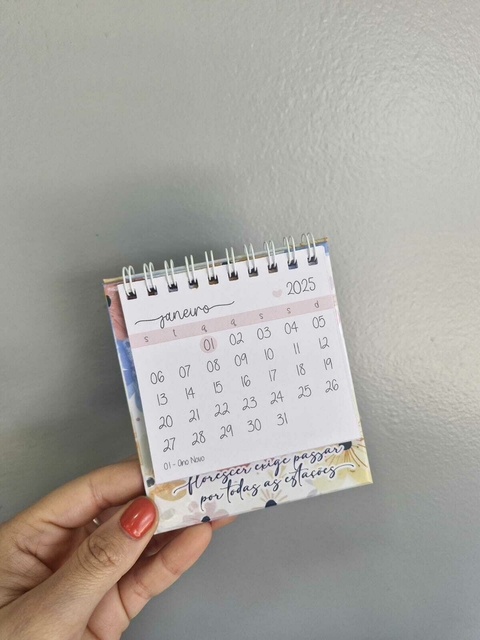 janeiro 2025
s t q q s s d
01 02 03 04 05
06 07 08 09 10 11 12
13 14 15 16 17 18 19
20 21 22 23 24 25 26
27 28 29 30 31
01 - Ano Novo
florescer exige passar
por todas as estações